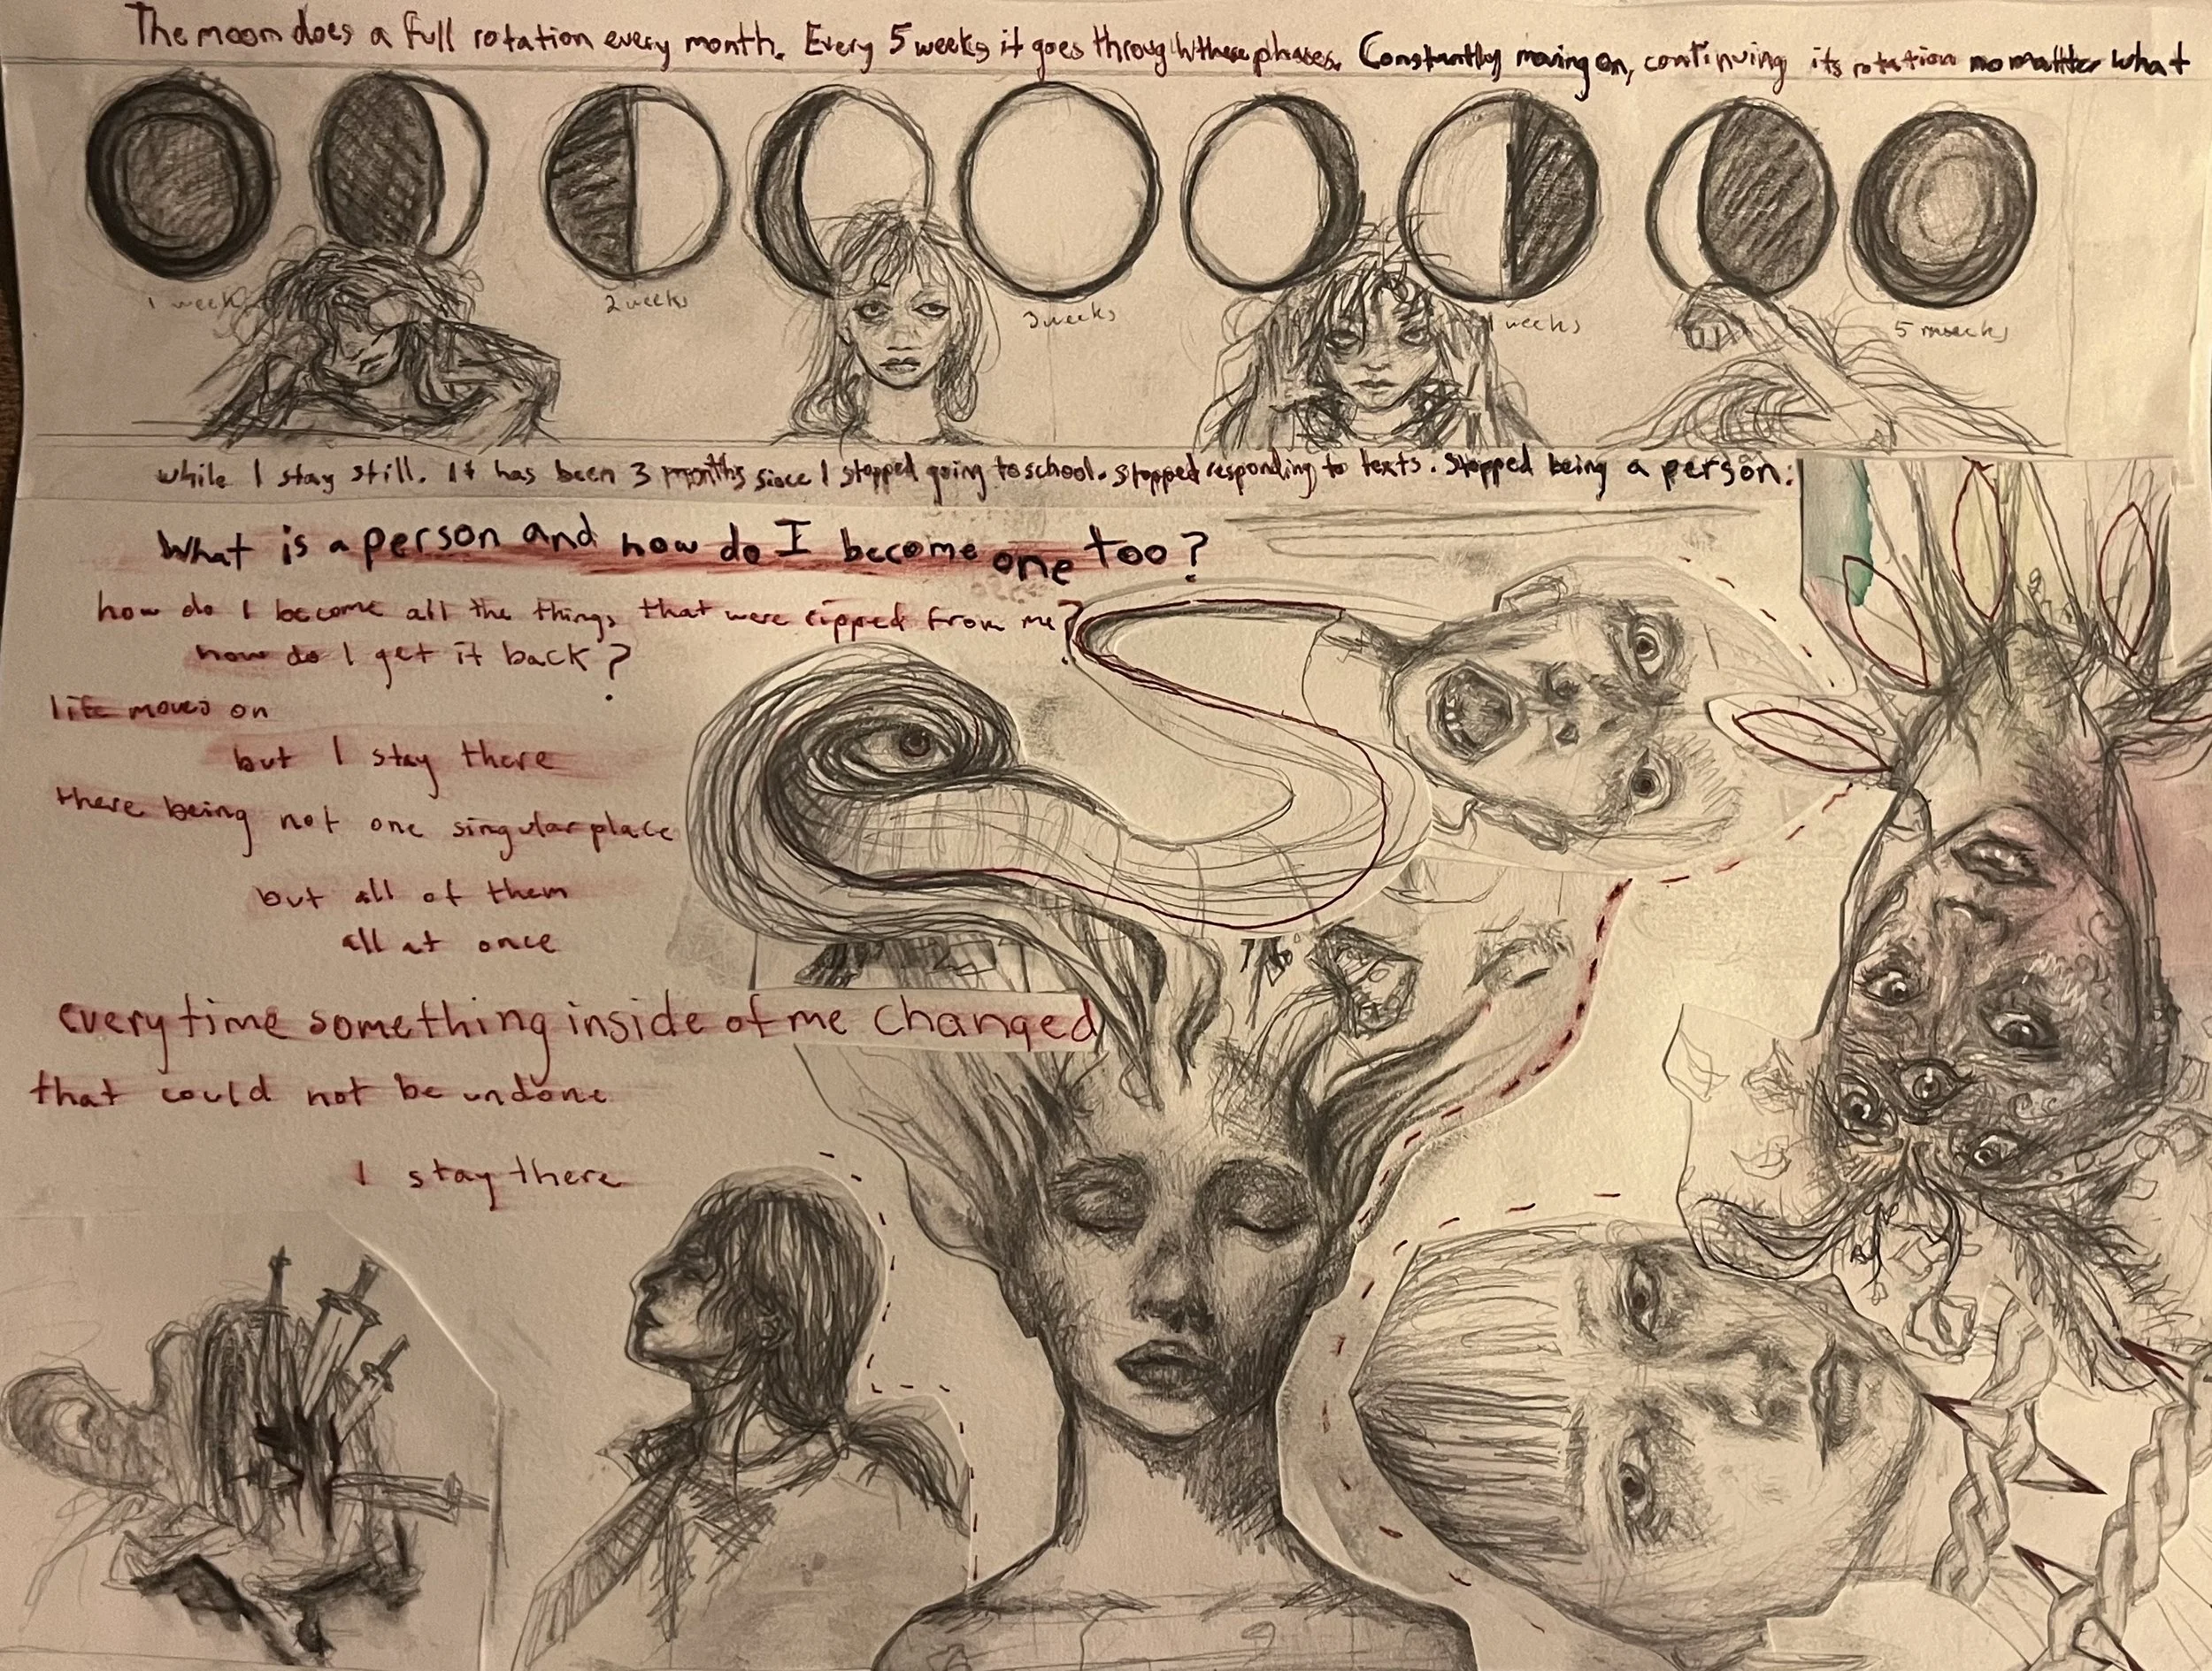 The moon does a full rotation every month. Every 5 weeks it goes through these phases. Constantly moving on, continuing its rotation no matter what
1 week
2 weeks
3 weeks
weeks
5
while I stay still. It has been 3 months since I stopped going to school. stopped responding to texts. Stopped being a person.
What is a person and how do I become one too?
how do I become all the things that were ripped from me?
how do I get it back?
life moves on
but I stay there
there being not one singular place
but all of them
all at once
everytime something inside of me changed
that could not be undone
I stay there